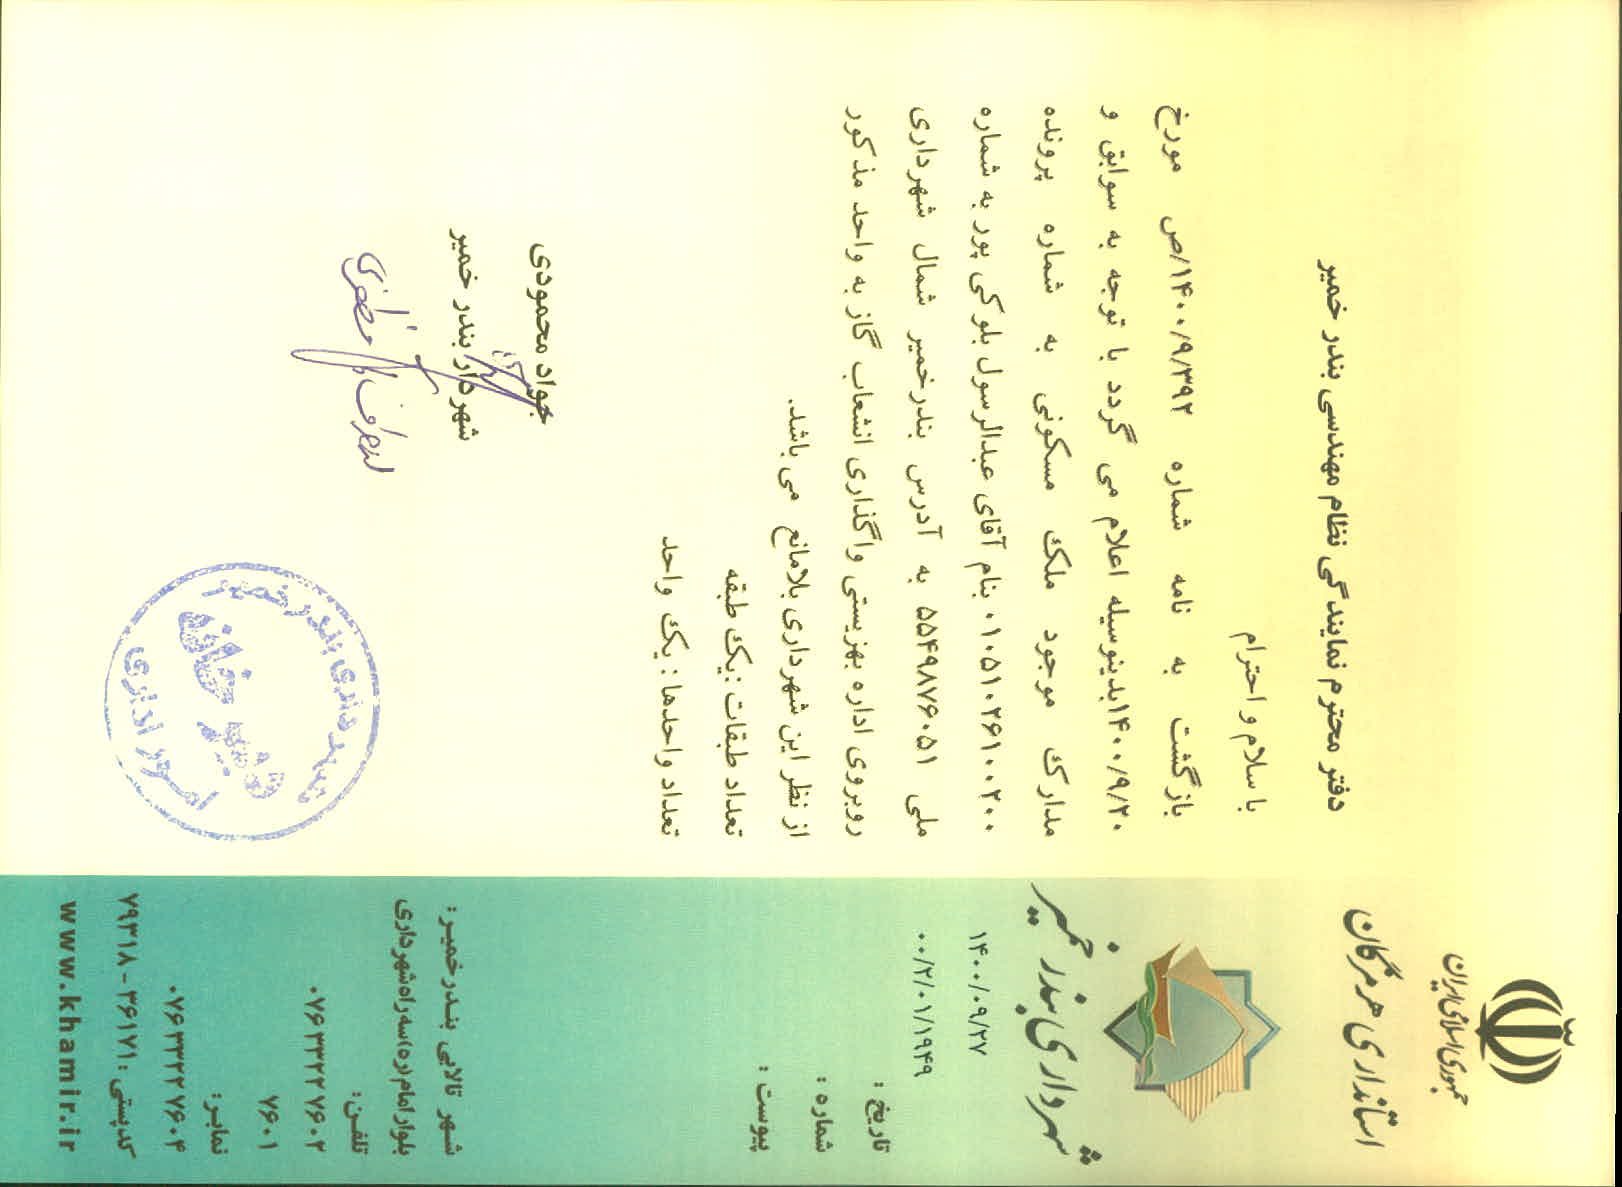 جمهوری اسلامی ایران
استانداری هرمزگان
شهرداری بندر خمیر
۱۴۰۰/۰۹/۲۷
۰۰/۲/۰۱/۱۹۴۹
تاریخ :
شماره :
پیوست :
شهر تالابی بندرخمیر:
بلوار امام (ره) سه راه شهرداری
تلفن:
۰۷۶۳۳۲۲۷۶۰۲
۷۶۰۱
نمابر:
۰۷۶۳۳۲۲۷۶۰۴
کدپستی : ۳۶۱۷۱ - ۷۹۳۱۸
www.khamir.ir
دفتر محترم نمایندگی نظام مهندسی بندر خمیر
با سلام و احترام
بازگشت به نامه شماره ۱۴۰۰/۹/۳۹۲/ص مورخ
۱۴۰۰/۹/۲۰بدینوسیله اعلام می گردد با توجه به سوابق و
مدارک موجود ملک مسکونی به شماره پرونده
۰۱۰۵۱۰۲۶۱۰۰۲۰۰ بنام آقای عبدالرسول بلوکی پور به شماره
ملی ۵۵۴۹۸۷۶۰۵۱ به آدرس بندرخمیر شمال شهرداری
روبروی اداره بهزیستی واگذاری انشعاب گاز به واحد مذکور
از نظر این شهرداری بلامانع می باشد.
تعداد طبقات :یک طبقه
تعداد واحدها : یک واحد
جواد محمودی
شهردار بندر خمیر
شهرداری بندر خمیر
دبیرخانه
امور اداری